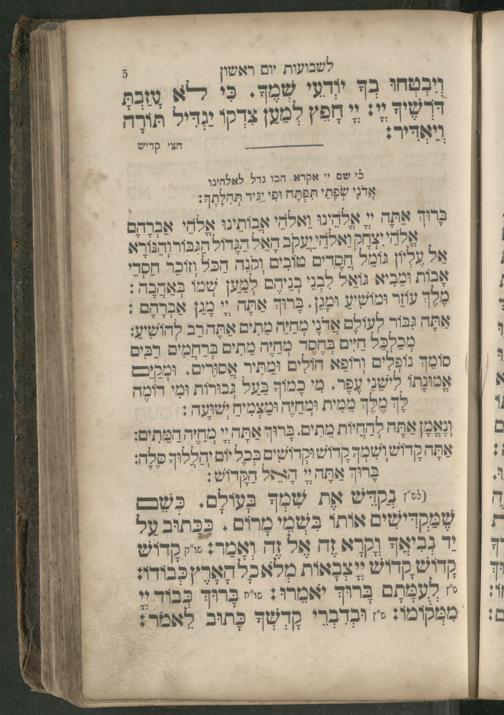 5 לשבועות יום ראשון
וְיִבְטְחוּ בְךָ יוֹדְעֵי שְׁמֶךָ. כִּי לֹא עָזַבְתָּ
דּוֹרְשֶׁיךָ יְיָ: יְיָ חָפֵץ לְמַעַן צִדְקוֹ יַגְדִּיל תּוֹרָה
וְיַאְדִּיר:
חצי קדיש
כִּי שם יי אקרא הבו גדל לאלהינו
אֲדֹנָי שְׂפָתַי תִּפְתָּח וּפִי יַגִּיד תְּהִלָּתֶךָ:
בָּרוּךְ אַתָּה יְיָ אֱלֹהֵינוּ וֵאלֹהֵי אֲבוֹתֵינוּ אֱלֹהֵי אַבְרָהָם
אֱלֹהֵי יִצְחָק וֵאלֹהֵי יַעֲקֹב הָאֵל הַגָּדוֹל הַגִּבּוֹר וְהַנּוֹרָא
אֵל עֶלְיוֹן גּוֹמֵל חֲסָדִים טוֹבִים וְקוֹנֵה הַכֹּל וְזוֹכֵר חַסְדֵי
אָבוֹת וּמֵבִיא גוֹאֵל לִבְנֵי בְנֵיהֶם לְמַעַן שְׁמוֹ בְּאַהֲבָה:
מֶלֶךְ עוֹזֵר וּמוֹשִׁיעַ וּמָגֵן. בָּרוּךְ אַתָּה יְיָ מָגֵן אַבְרָהָם:
אַתָּה גִבּוֹר לְעוֹלָם אֲדֹנָי מְחַיֵּה מֵתִים אַתָּה רַב לְהוֹשִׁיעַ:
מְכַלְכֵּל חַיִּים בְּחֶסֶד מְחַיֵּה מֵתִים בְּרַחֲמִים רַבִּים
סוֹמֵךְ נוֹפְלִים וְרוֹפֵא חוֹלִים וּמַתִּיר אֲסוּרִים. וּמְקַיֵּם
אֱמוּנָתוֹ לִישֵׁנֵי עָפָר. מִי כָמוֹךָ בַּעַל גְּבוּרוֹת וּמִי דוֹמֶה
לָּךְ מֶלֶךְ מֵמִית וּמְחַיֶּה וּמַצְמִיחַ יְשׁוּעָה:
וְנֶאֱמָן אַתָּה לְהַחֲיוֹת מֵתִים. בָּרוּךְ אַתָּה יְיָ מְחַיֵּה הַמֵּתִים:
אַתָּה קָדוֹשׁ וְשִׁמְךָ קָדוֹשׁ וּקְדוֹשִׁים בְּכָל יוֹם יְהַלְלוּךָ סֶּלָה:
בָּרוּךְ אַתָּה יְיָ הָאֵל הַקָּדוֹשׁ:
נְקַדֵּשׁ אֶת שִׁמְךָ בָּעוֹלָם. כְּשֵׁם
שֶׁמַּקְדִּישִׁים אוֹתוֹ בִּשְׁמֵי מָרוֹם. כַּכָּתוּב עַל
יַד נְבִיאֶךָ וְקָרָא זֶה אֶל זֶה וְאָמַר: קו״ח קָדוֹשׁ
קָדוֹשׁ קָדוֹשׁ יְיָ צְבָאוֹת מְלֹא כָל הָאָרֶץ כְּבוֹדוֹ:
ש״ץ לְעֻמָּתָם בָּרוּךְ יֹאמֵרוּ: קו״ח בָּרוּךְ כְּבוֹד יְיָ
מִמְּקוֹמוֹ: ש״ץ וּבְדִבְרֵי קָדְשְׁךָ כָּתוּב לֵאמֹר: